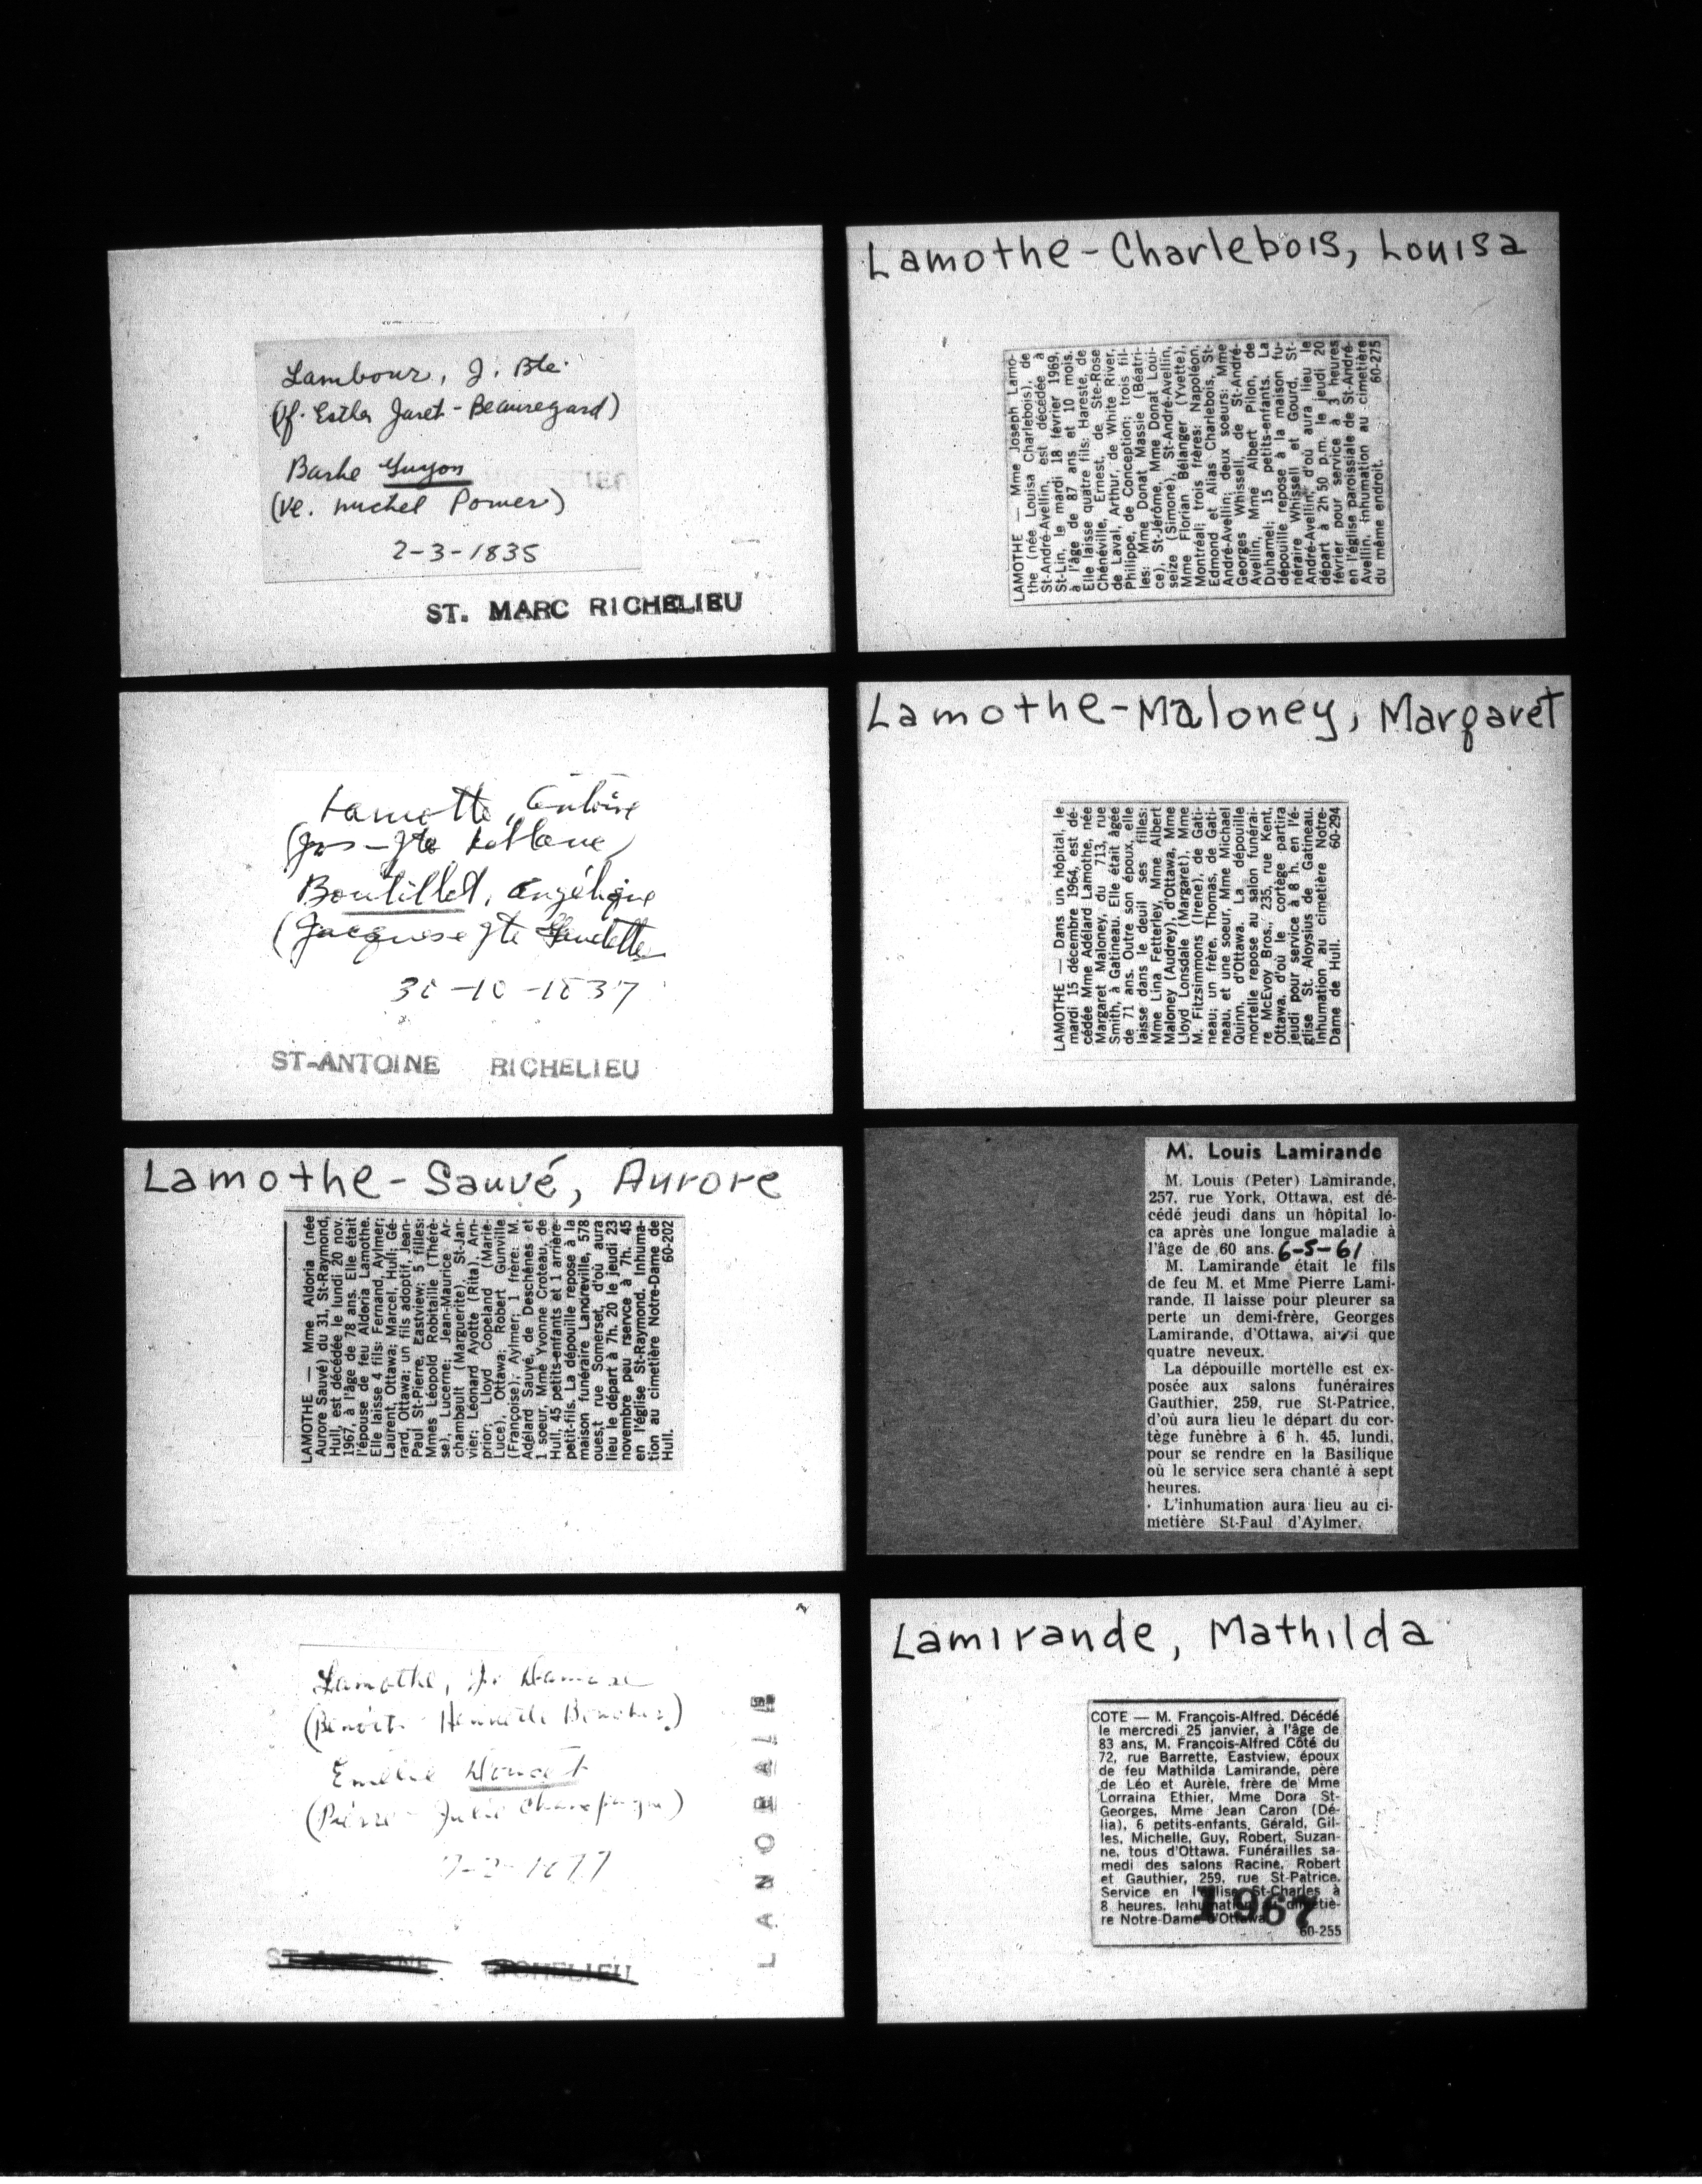 Lambour, J. Bte.
(f. Esther Jaret-Beauregard)
Barbe Guyon
(Ve. michel Pomer)
2-3-1835
ST. MARC RICHELIEU
Lamothe-Charlebois, Louisa
LAMOTHE — Mme Joseph Lamo-
the (née Louisa Charlebois), de
St-André-Avellin, est décédée à
St-Lin, le mardi 18 février 1969,
à l'âge de 87 ans et 10 mois.
Elle laisse quatre fils: Hareste, de
Chénéville, Ernest, de Ste-Rose
de Laval, Arthur, de White River,
Philippe, de Conception; trois fil-
les: Mme Donat Massie (Béatri-
ce), St-Jérôme, Mme Donat Loui-
seize (Simone), St-André-Avellin,
Mme Florian Bélanger (Yvette),
Montréal; trois frères: Napoléon,
Edmond et Alias Charlebois, St-
André-Avellin; deux soeurs: Mme
Georges Whissell, de St-André-
Avellin, Mme Albert Pilon, de
Duhamel; 15 petits-enfants. La
dépouille repose à la maison fu-
néraire Whissell et Gourd, St-
André-Avellin, d'où aura lieu le
départ à 2h 50 p.m. le jeudi 20
février pour service à 3 heures
en l'église paroissiale de St-André-
Avellin. Inhumation au cimetière
du même endroit. 60-275
Lamotte, Antoine
(Jos-Jte
Boutillet, Angélique
(Jacques Jte Gaudette
30-10-1837
ST-ANTOINE RICHELIEU
Lamothe-Maloney, Margaret
LAMOTHE — Dans un hôpital, le
mardi 15 décembre 1964, est dé-
cédée Mme Adélard Lamothe, née
Margaret Maloney, du 713, rue
Smith, à Gatineau. Elle était âgée
de 71 ans. Outre son époux, elle
laisse dans le deuil ses filles:
Mme Lina Fetterley, Mme Albert
Maloney (Audrey), d'Ottawa, Mme
Lloyd Lonsdale (Margaret), Mme
M. Fitzsimmons (Irene), de Gati-
neau; un frère, Thomas, de Gati-
neau, et une soeur, Mme Michael
Quinn, d'Ottawa. La dépouille
mortelle repose au salon funérai-
re McEvoy Bros., 235, rue Kent,
Ottawa, d'où le cortège partira
jeudi pour service à 8 h. en l'é-
glise St. Aloysius de Gatineau.
Inhumation au cimetière Notre-
Dame de Hull. 60-294
Lamothe-Sauvé, Aurore
LAMOTHE — Mme Aldoria (née
Aurore Sauvé) du 31, St-Raymond,
Hull, est décédée le lundi 20 nov.
1967, à l'âge de 78 ans. Elle était
l'épouse de feu Aldoria Lamothe.
Elle laisse 4 fils: Fernand, Aylmer;
Laurent, Ottawa; Marcel, Hull; Gé-
rard, Ottawa; un fils adoptif, Jean-
Paul St-Pierre, Eastview; 5 filles:
Mmes Léopold Robitaille (Thérè-
se), Lucerne; Jean-Maurice Ar-
chambault (Marguerite), St-Jan-
vier; Léonard Ayotte (Rita), Arn-
prior; Lloyd Copeland (Marie-
Luce), Ottawa; Robert Gunville
(Françoise), Aylmer; 1 frère: M.
Adélard Sauvé, de Deschênes et
1 soeur, Mme Yvonne Croteau, de
Hull, 45 petits-enfants et 1 arrière-
petit-fils. La dépouille repose à la
maison funéraire Landreville, 578
oues,t rue Somerset, d'où aura
lieu le départ à 7h. 20 le jeudi 23
novembre peu rservice à 7h. 45
en l'église St-Raymond. Inhuma-
tion au cimetière Notre-Dame de
Hull. 60-202
M. Louis Lamirande
M. Louis (Peter) Lamirande,
257, rue York, Ottawa, est dé-
cédé jeudi dans un hôpital lo-
ca après une longue maladie à
l'âge de 60 ans. 6-5-61
M. Lamirande était le fils
de feu M. et Mme Pierre Lami-
rande. Il laisse pour pleurer sa
perte un demi-frère, Georges
Lamirande, d'Ottawa, ainsi que
quatre neveux.
La dépouille mortelle est ex-
posée aux salons funéraires
Gauthier, 259, rue St-Patrice,
d'où aura lieu le départ du cor-
tège funèbre à 6 h. 45, lundi,
pour se rendre en la Basilique
où le service sera chanté à sept
heures.
L'inhumation aura lieu au ci-
metière St-Paul d'Aylmer.
Lamothe, Jos Damase
(Benoit - Henriette Boucher)
Emélie Doucet
(Pierre - Julie Champagne)
ST-ANTOINE RICHELIEU
LANORAIE
Lamirande, Mathilda
COTE — M. François-Alfred. Décédé
le mercredi 25 janvier, à l'âge de
83 ans, M. François-Alfred Côté du
72, rue Barrette, Eastview, époux
de feu Mathilda Lamirande, père
de Léo et Aurèle, frère de Mme
Lorraina Ethier, Mme Dora St-
Georges, Mme Jean Caron (Dé-
lia), 6 petits-enfants, Gérald, Gil-
les, Michelle, Guy, Robert, Suzan-
ne, tous d'Ottawa. Funérailles sa-
medi des salons Racine, Robert
et Gauthier, 259, rue St-Patrice.
Service en l'église St-Charles à
8 heures. Inhumation cimetiè-
re Notre-Dame d'Ottawa.
1967
60-255